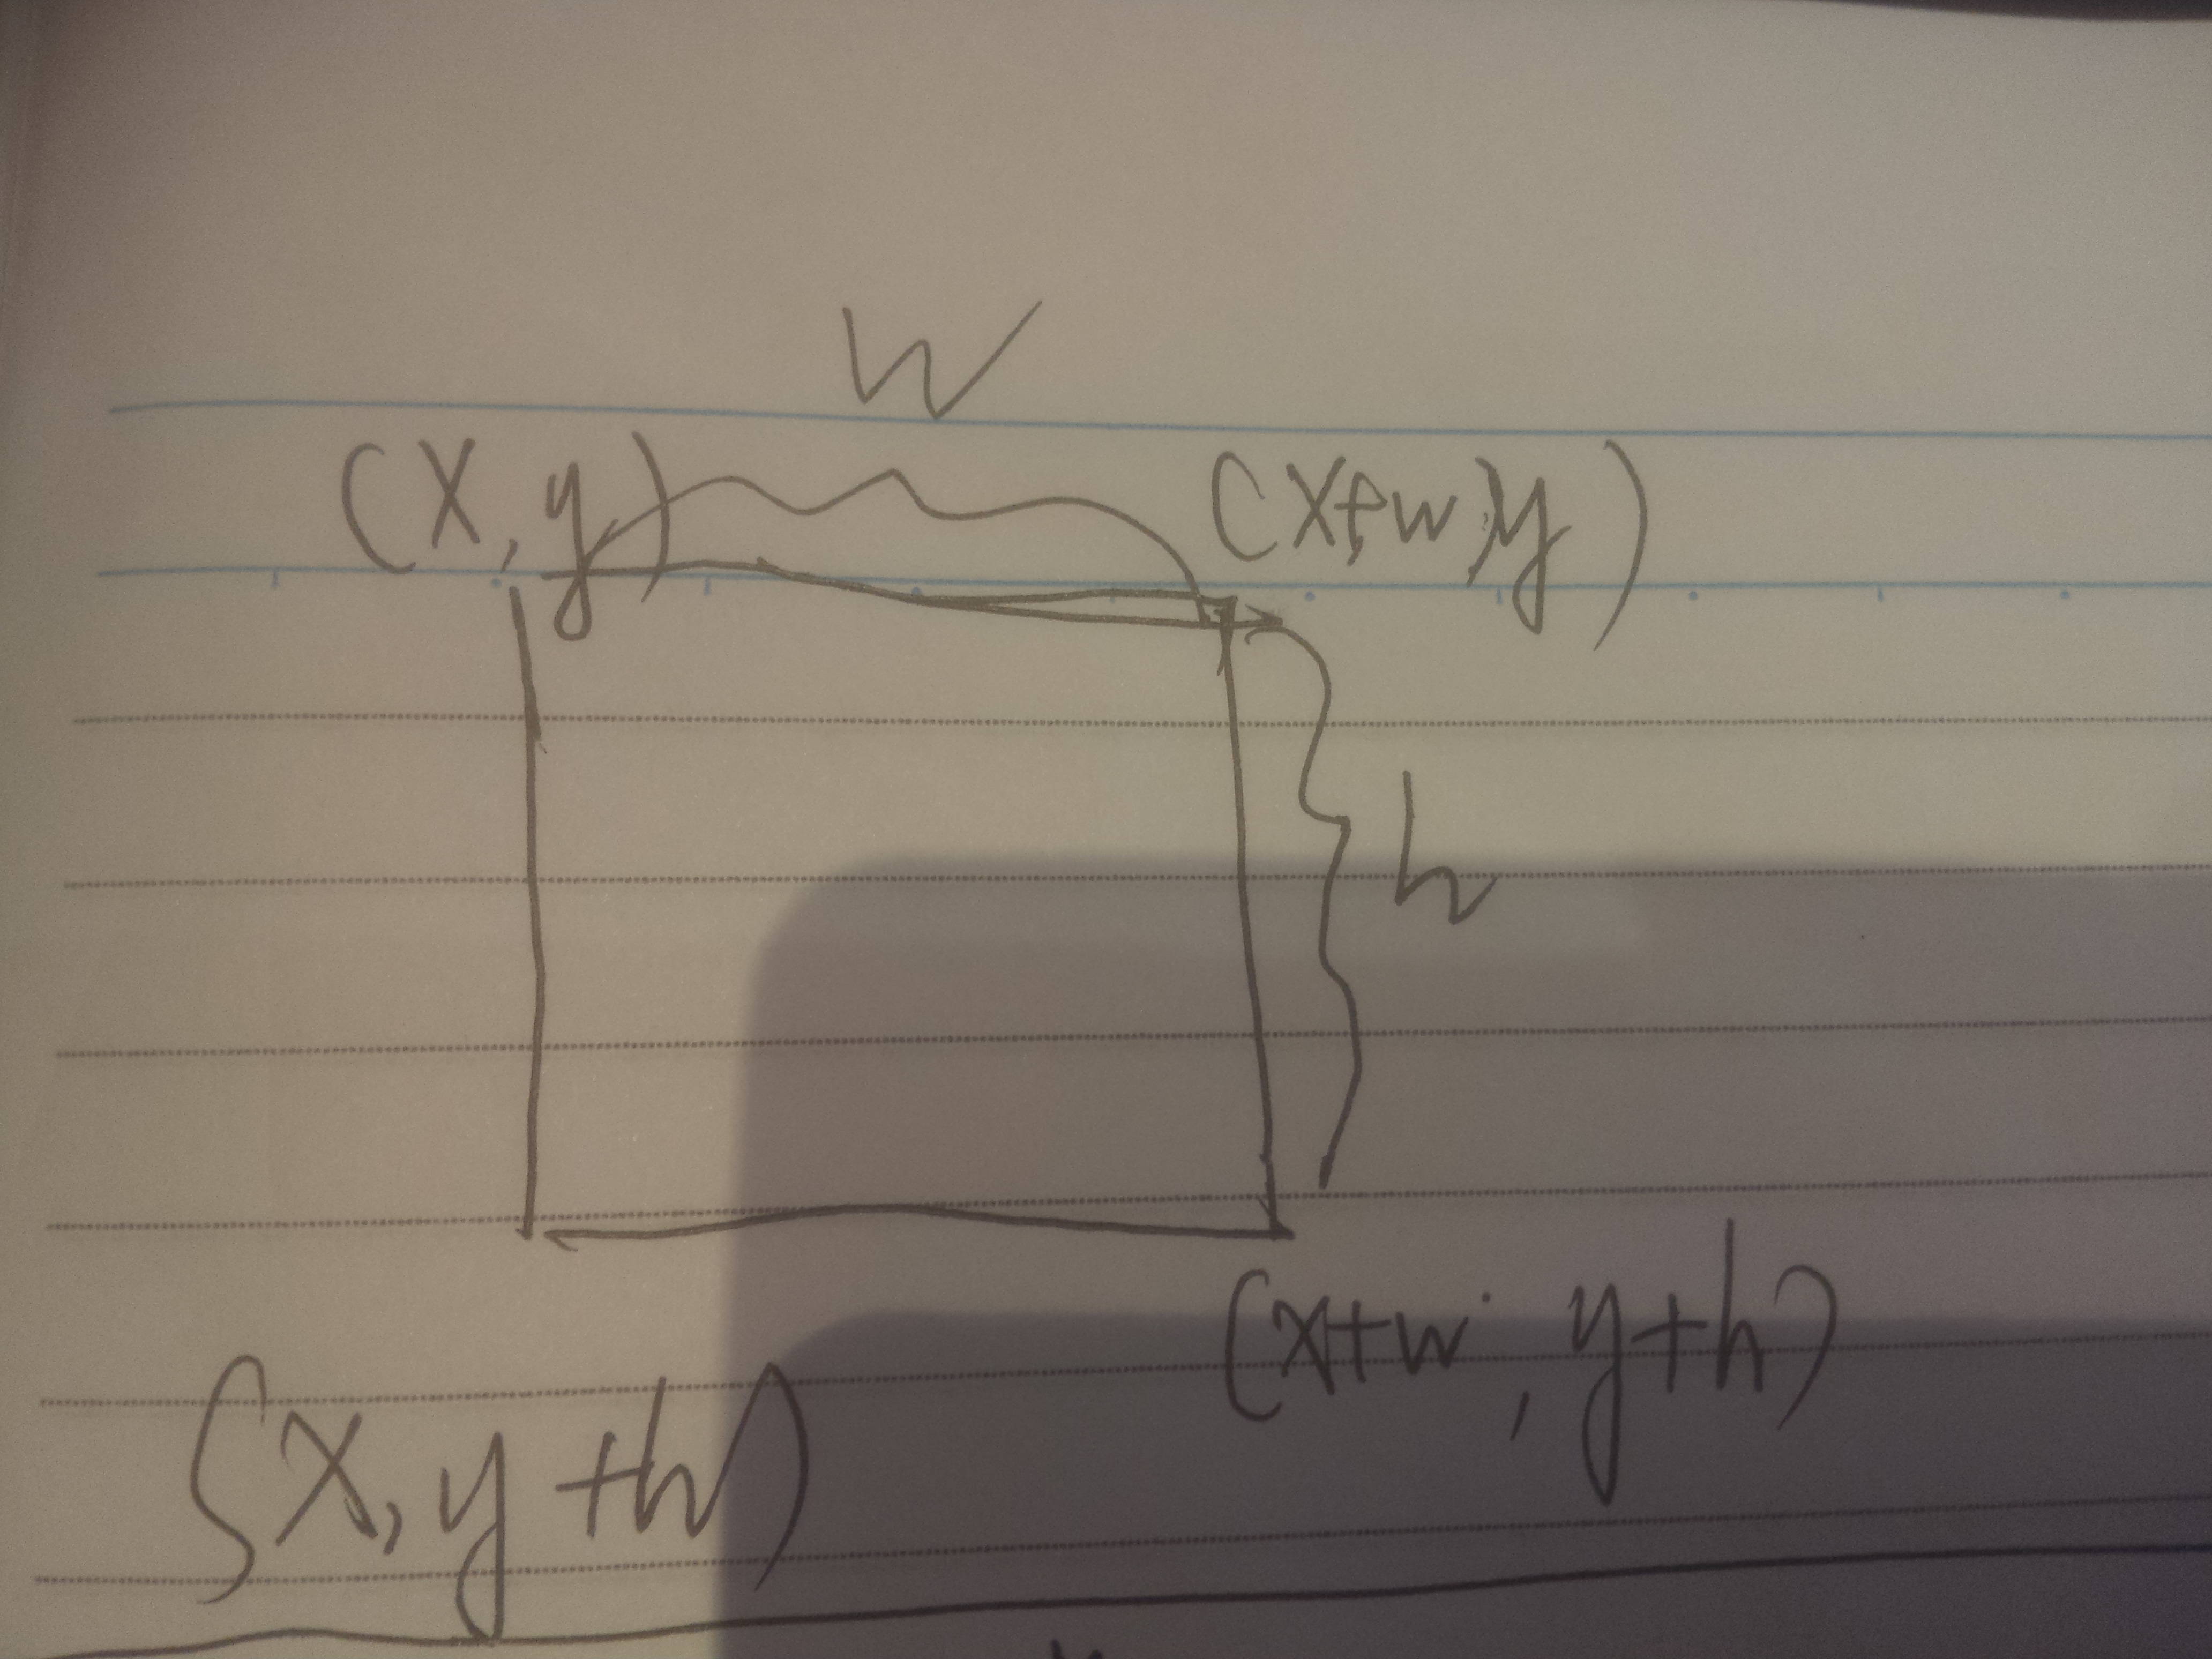 W
(x, y) (x+w, y)
h
(x+w, y+h)
(x, y+h)